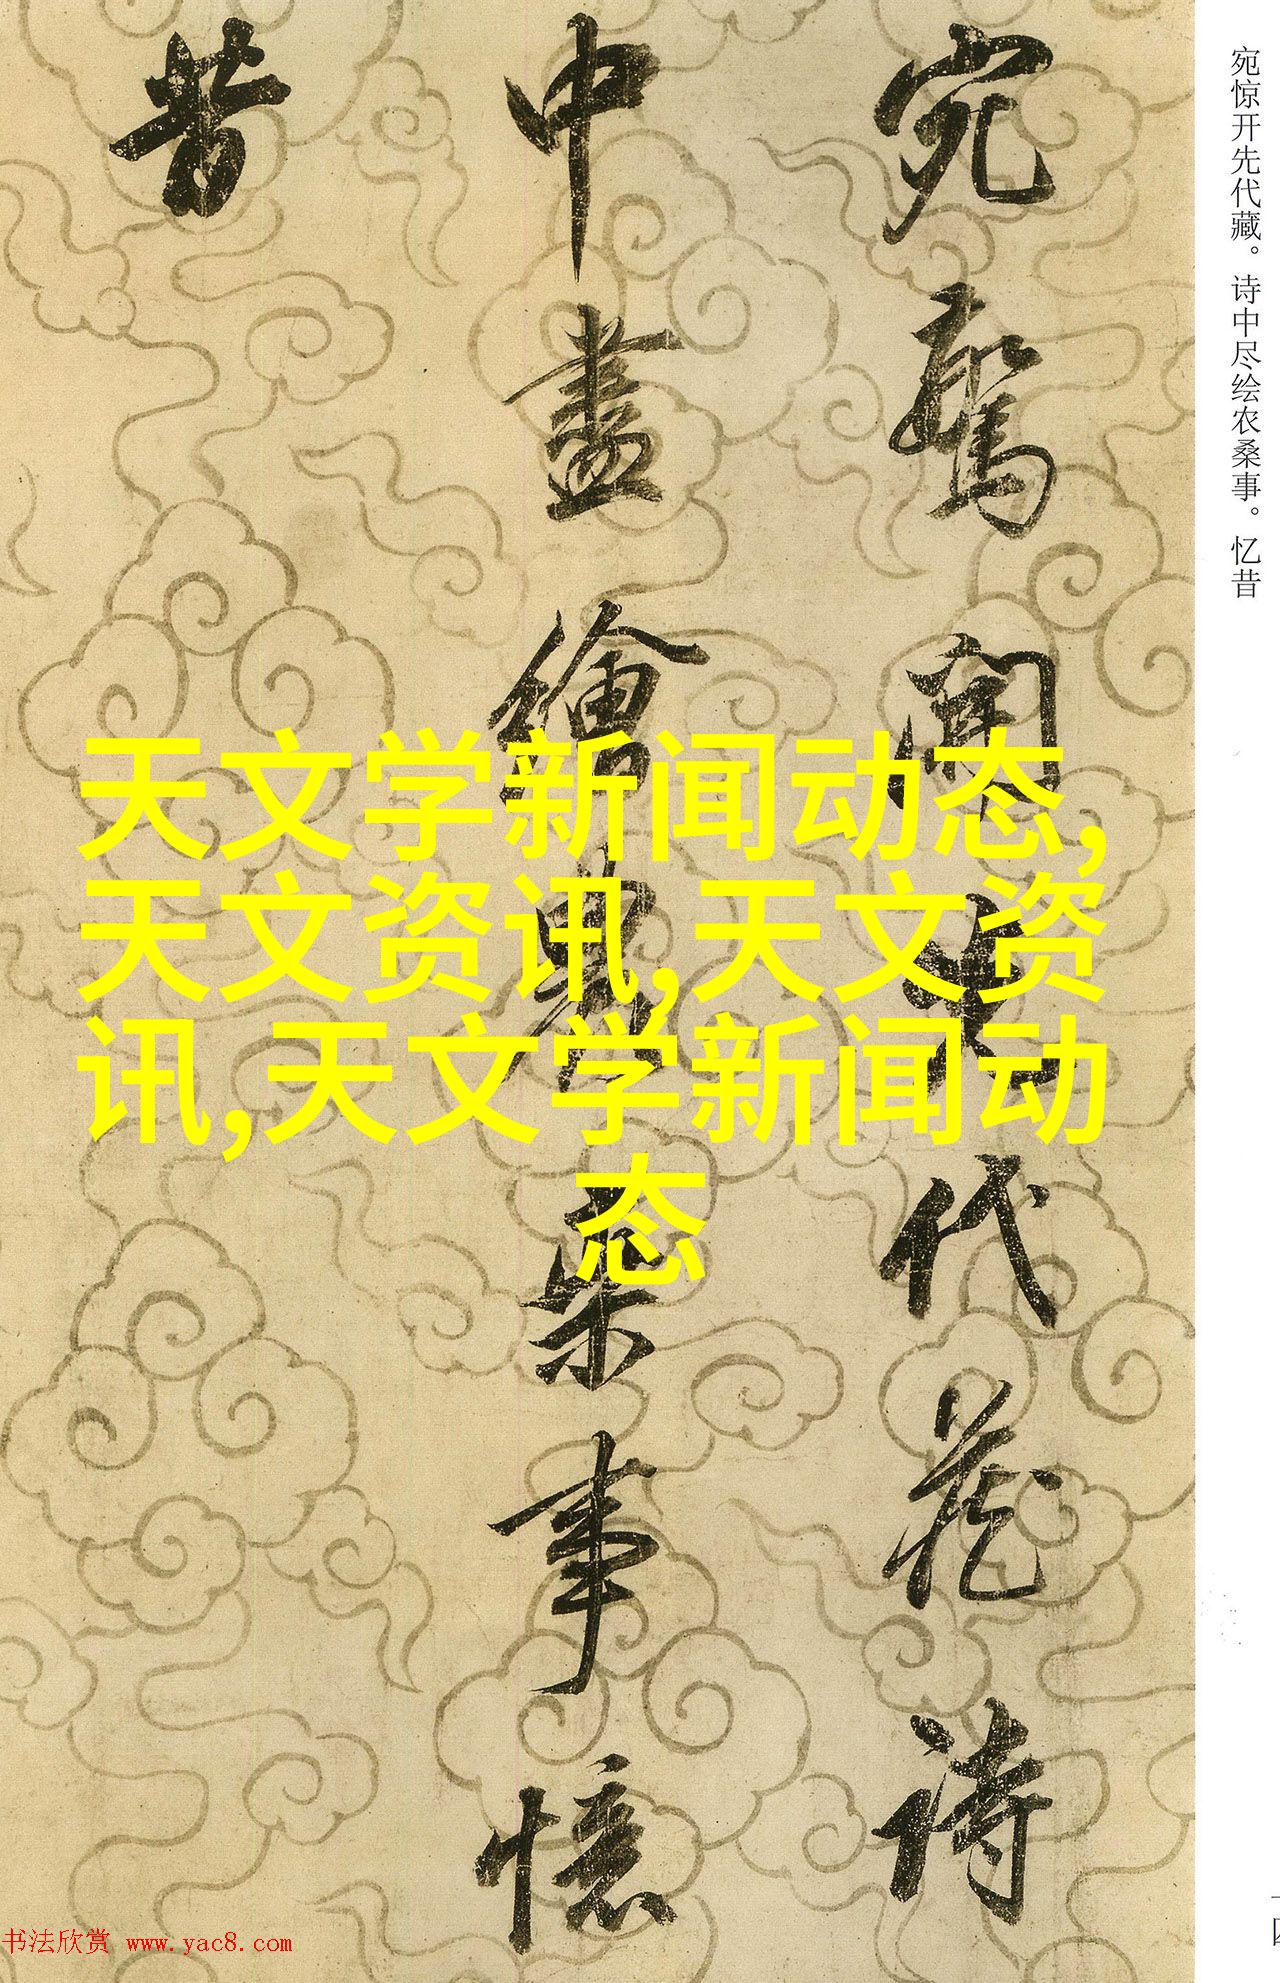 宛驚開先代藏詩
中盡繪農桑事憶
昔
宛惊开先代藏。诗中尽绘农桑事。忆昔
天文学新闻动态,
天文资讯,天文资
讯,天文学新闻动
态
书法欣赏 www.yac8.com